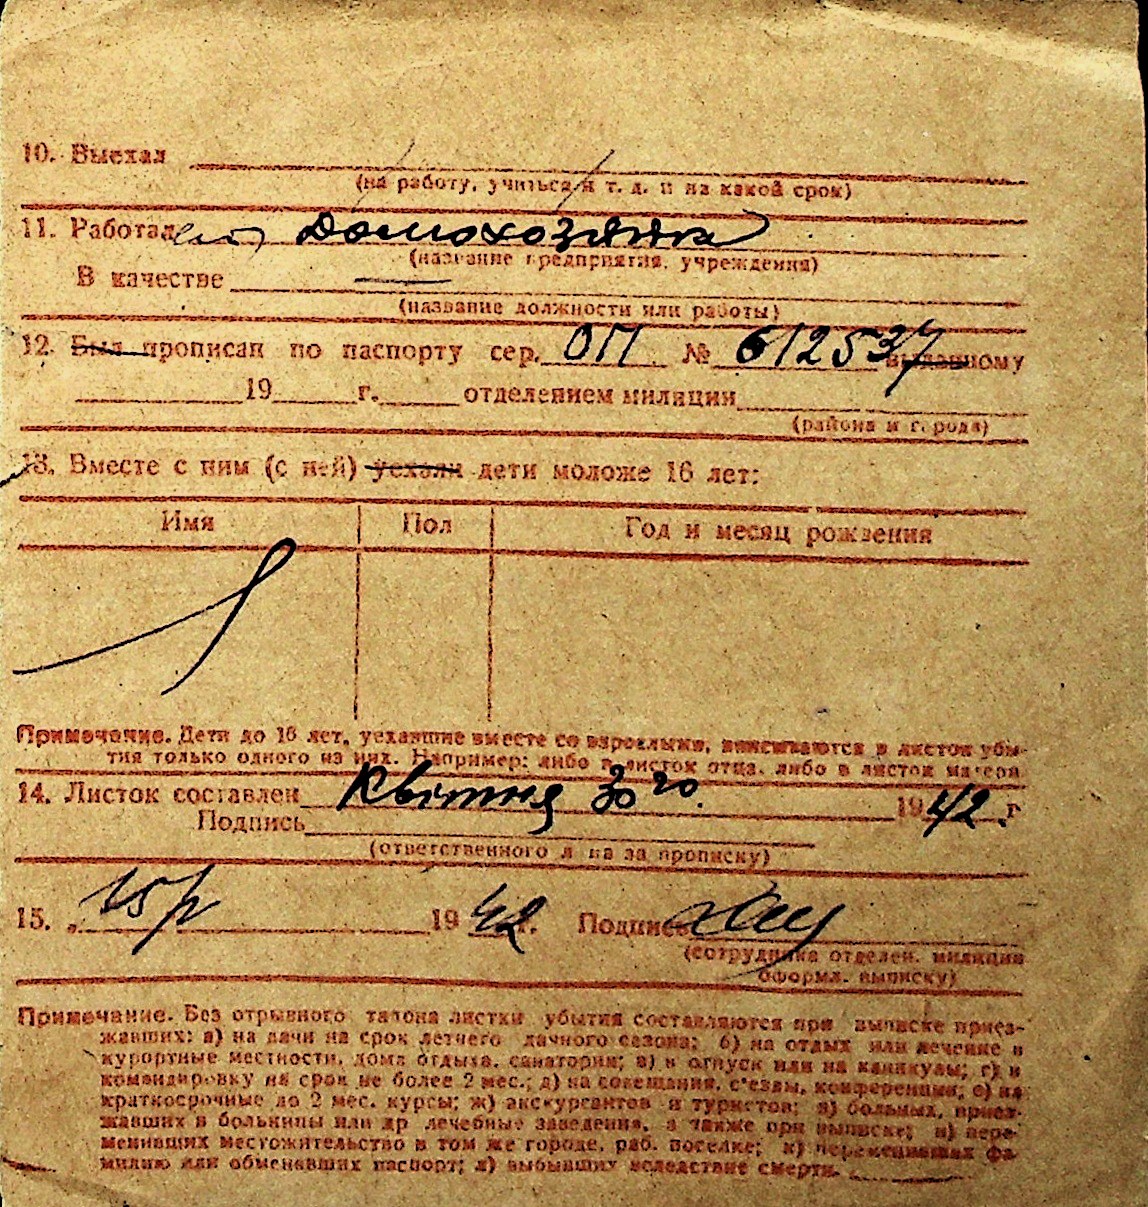 10. Выехал
(на работу, учиться и т. д. и на какой срок)
11. Работал Домохозяйка
(название предприятия, учреждения)
В качестве —
(название должности или работы)
12. Был прописан по паспорту сер. ОП № 612537 выданному
19 г. отделением милиции
(района и города)
13. Вместе с ним (с ней) уехали дети моложе 16 лет:
Имя Пол Год и месяц рождения
Примечание. Дети до 16 лет, уехавшие вместе со взрослыми, вписываются в листок убы-
тия только одного из них. Например: либо в листок отца, либо в листок матери.
14. Листок составлен Квітня 30го 1942 г
Подпись
(ответственного лица за прописку)
15. „ 1942 г. Подпись
(сотрудника отделен. милиции
оформл. выписку)
Примечание. Без отрывного талона листки убытия составляются при выписке приез-
жавших: а) на дачи на срок летнего дачного сезона; б) на отдых или лечение в
курортные местности, дома отдыха, санатории; в) в отпуск или на каникулы; г) в
командировку на срок не более 2 мес.; д) на совещания, с'езды, конференции; е) на
краткосрочные до 2 мес. курсы; ж) экскурсантов и туристов; з) больных, приез-
жавших в больницы или др лечебные заведения, а также при выписке; и) пере-
менивших местожительство в том же городе, раб. поселке; к) переменивших фа-
милию или обменявших паспорт; л) выбывших вследствие смерти.